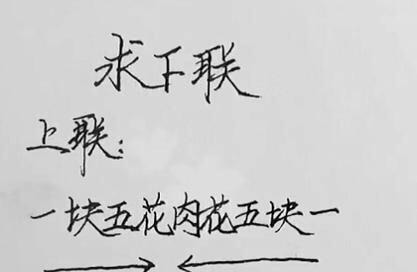 求下联
上联:
一块五花肉花五块一